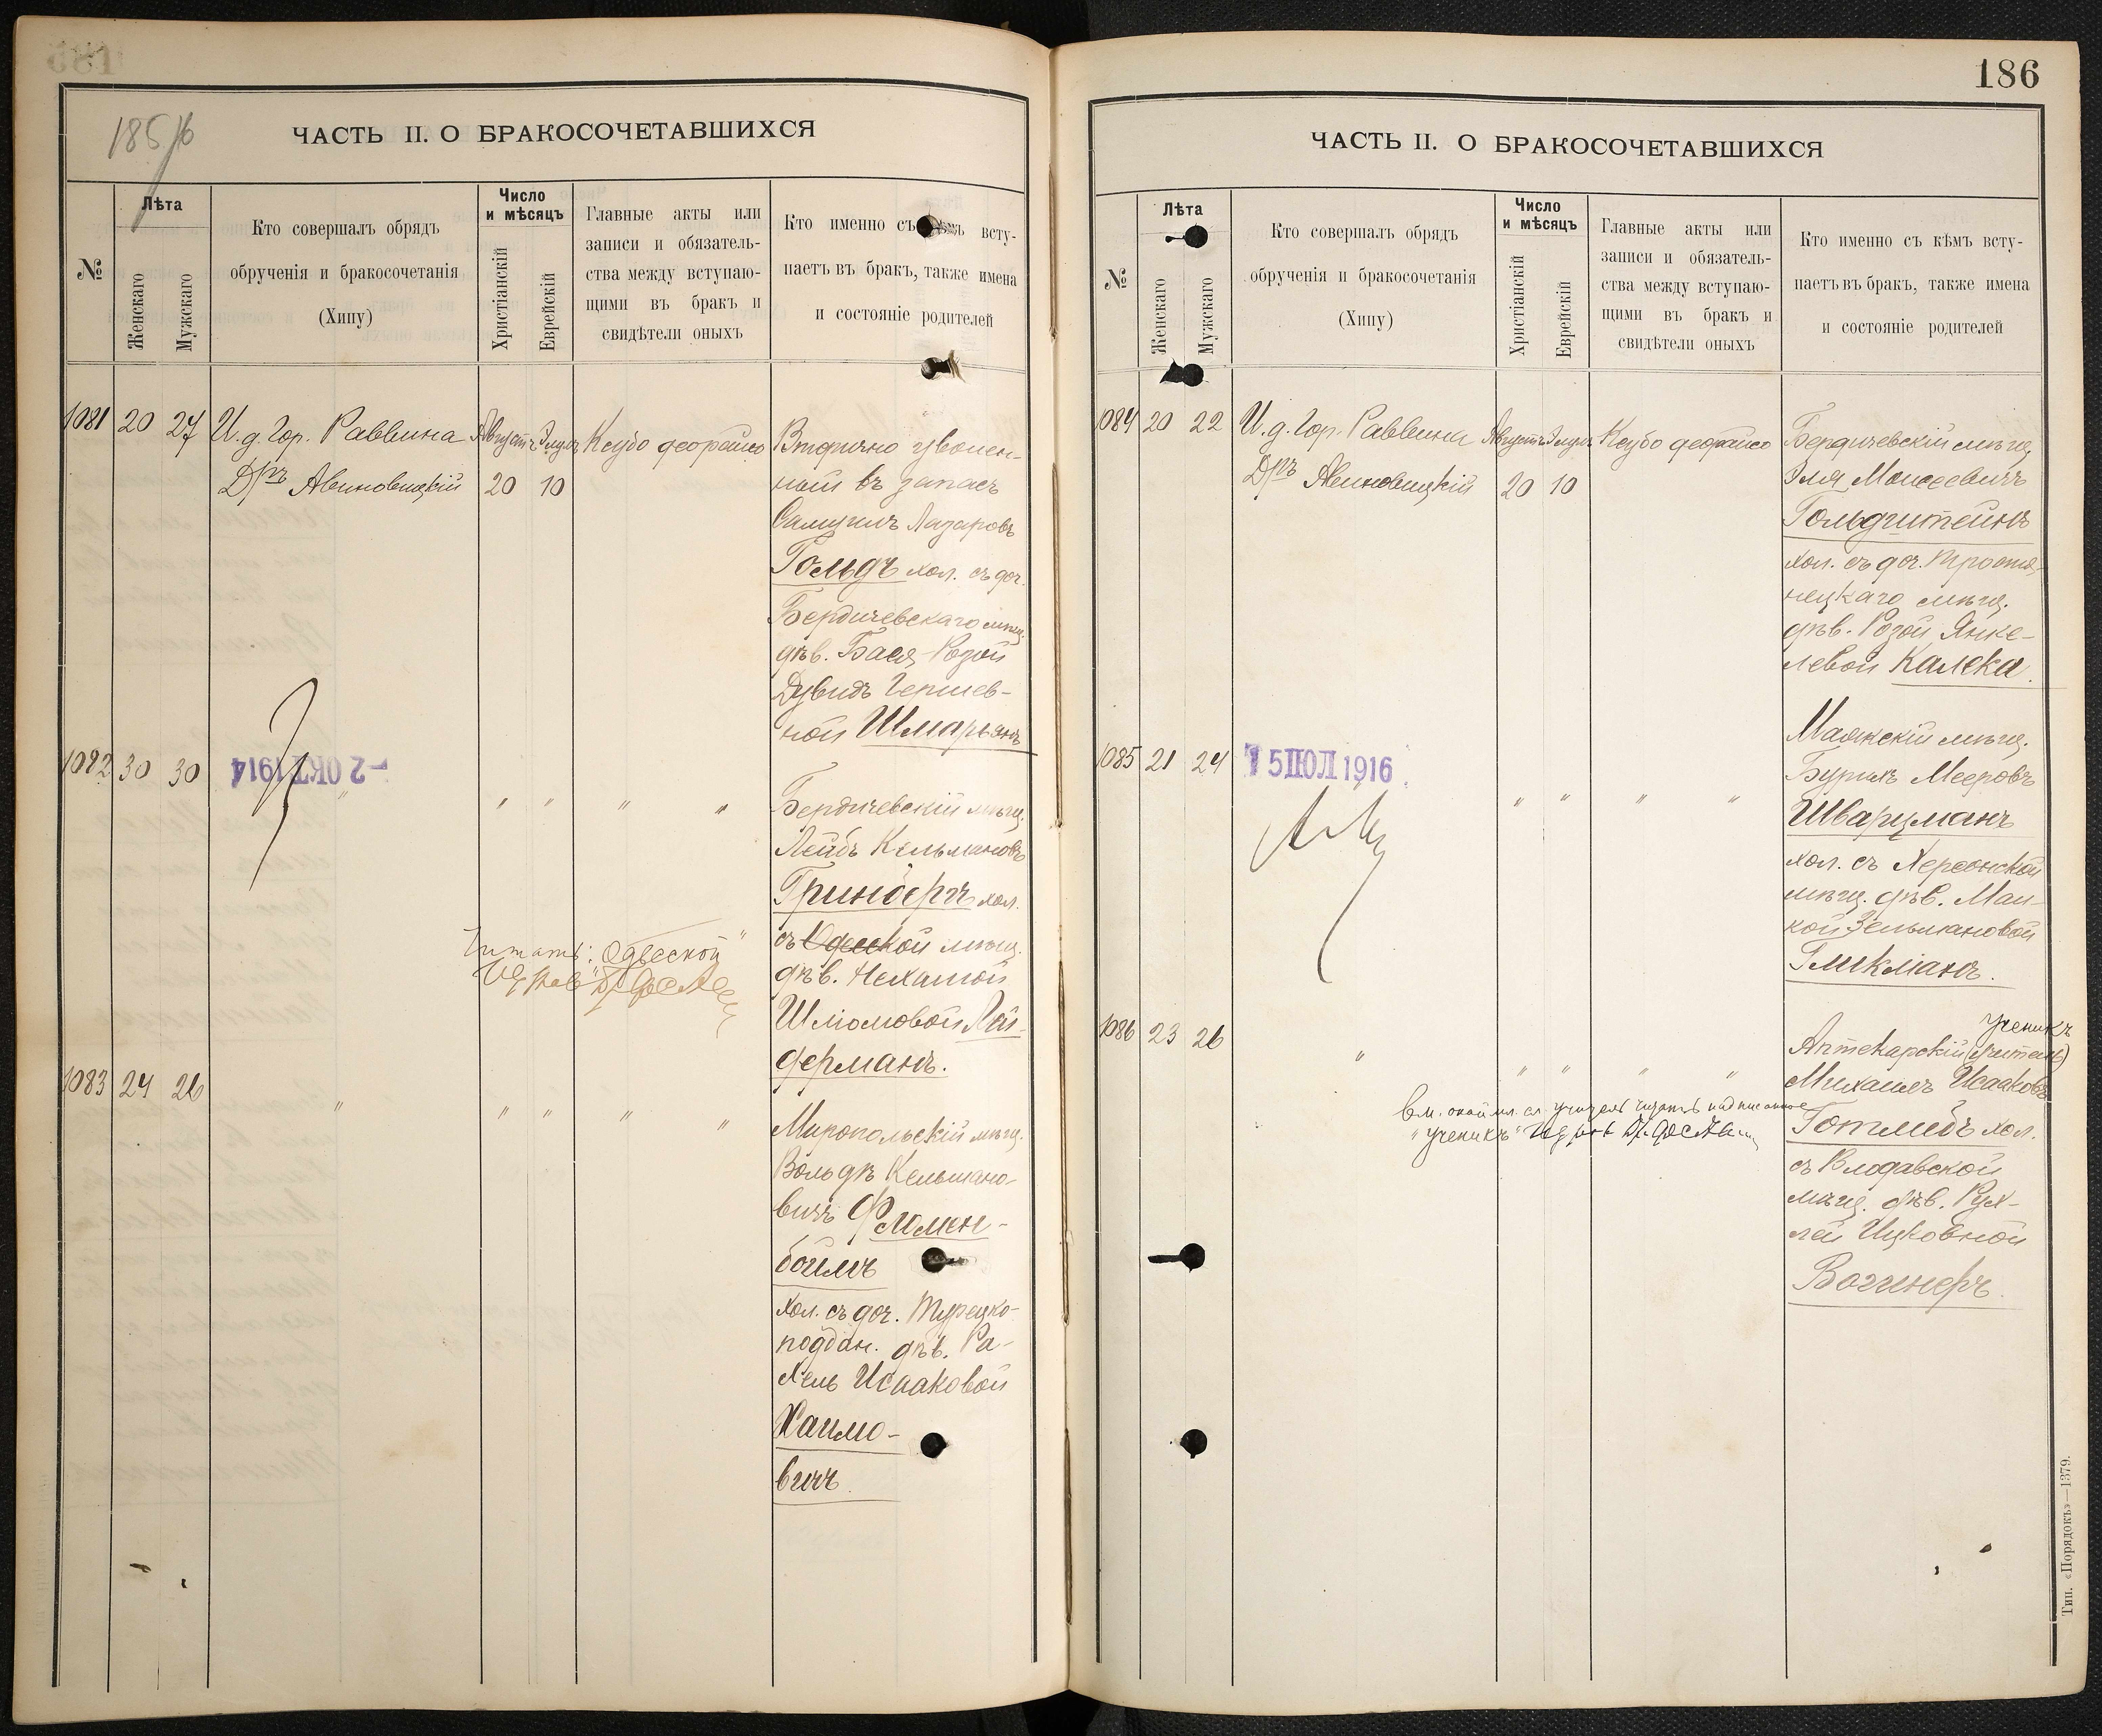 185/б
ЧАСТЬ II. О БРАКОСОЧЕТАВШИХСЯ
№
Лѣта
Женскаго
Мужскаго
Кто совершалъ обрядъ
обрученія и бракосочетанія
(Хипу)
Число
и мѣсяцъ
Христіанскій
Еврейскій
Главные акты или
записи и обязатель-
ства между вступаю-
щими въ бракъ и
свидѣтели оныхъ
Кто именно съ всту-
паетъ въ бракъ, также имена
и состояніе родителей
1081 20 27 И. д. Гор. Раввина Августъ Элулъ Ксубо деорайсо
Д-ръ Авиновицкій 20 10
Вторично уволен-
ный въ запасъ
Самуилъ Лазаровъ
Гольдъ хол. съ доч.
Бердичевскаго мѣщ.
дѣв. Бася-Розой
Дувидъ Гершев-
ной Шмарьянъ
1082 30 30 " " " " "
-2 ОКТ 1914
Бердичевскій мѣщ.
Лейбъ Кельмановъ
Гринбергъ хол.
съ Одесской мѣщ.
дѣв. Нехамой
Шломовой Лай-
дерманъ.
Читать: "Одесской"
1083 24 26 " " " " "
Миропольскій мѣщ.
Вольдъ Кельмано-
вичъ Фломен-
боймъ
хол. съ доч. Турецко-
поддан. дѣв. Ра-
хель Исааковой
Хаимо-
вичъ
186
ЧАСТЬ II. О БРАКОСОЧЕТАВШИХСЯ
№
Лѣта
Женскаго
Мужскаго
Кто совершалъ обрядъ
обрученія и бракосочетанія
(Хипу)
Число
и мѣсяцъ
Христіанскій
Еврейскій
Главные акты или
записи и обязатель-
ства между вступаю-
щими въ бракъ и
свидѣтели оныхъ
Кто именно съ кѣмъ всту-
паетъ въ бракъ, также имена
и состояніе родителей
1084 20 22 И. д. Гор. Раввина Августъ Элулъ Ксубо деорайсо
Д-ръ Авиновицкій 20 10
Бердичевскій мѣщ.
Эля Моисеевичъ
Гольдштейнъ
хол. съ доч. Тростя-
нецкаго мѣщ.
дѣв. Розой Янке-
левой Калека.
1085 21 24 " " " "
15 ІЮЛ 1916
Маякскій мѣщ.
Бурихъ Мееровъ
Шварцманъ
хол. съ Херсонской
мѣщ. дѣв. Ман-
кой Зельмановой
Гликманъ.
1086 23 26 " " " " "
ученикъ
Аптекарскій (учитель)
Михаилъ Исааковъ
Готлибъ хол.
съ Влодавской
мѣщ. дѣв. Рух-
лей Ицковной
Вогинеръ.
читать надписанное
"ученикъ"
Тип. «Порядокъ»—1379.